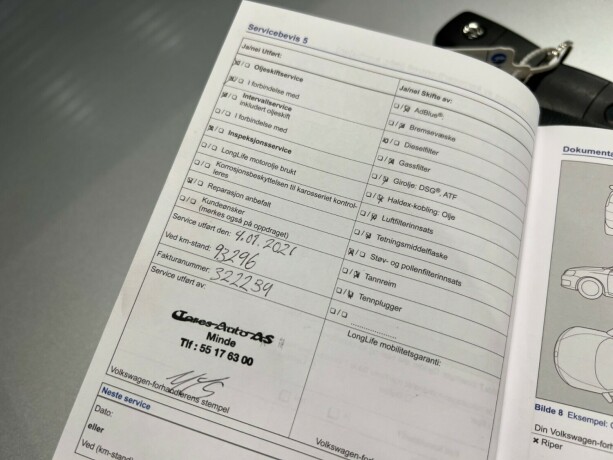 Servicebevis 5
Ja/nei Utført:
☒/☐ Oljeskiftservice
☒/☐ I forbindelse med
Intervallservice
inkludert oljeskift
☐/☐ I forbindelse med
☒/☐ Inspeksjonsservice
☐/☐ LongLife motorolje brukt
☐/☐ Korrosjonsbeskyttelsen til karosseriet kontrol-
leres
☒/☐ Reparasjon anbefalt
☐/☐ Kundeønsker
(merkes også på oppdraget)
Service utført den: 4.01.2021
Ved km-stand: 93296
Fakturanummer: 322239
Service utført av:
Auto AS
Minde
Tlf : 55 17 63 00
Volkswagen-forhandlerens stempel
Ja/nei Skifte av:
☐/☒ AdBlue®:
☐/☒ Bremsevæske
☒/☐ Dieselfilter
☐/☒ Gassfilter
☐/☒ Girolje: DSG®: ATF
☐/☒ Haldex-kobling: Olje
☐/☒ Luftfilterinnsats
☐/☒ Tetningsmiddelflaske
☒/☐ Støv- og pollenfilterinnsats
☐/☒ Tannreim
☐/☒ Tennplugger
☐/☐
LongLife mobilitetsgaranti:
Volkswagen-
Neste service
Dato:
eller
Ved (km-stand)
Dokumenta
Bilde 8 Eksempel:
Din Volkswagen-forh
× Riper